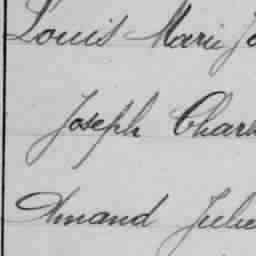 Louis Marie Jo
Joseph Charl
Amand Jule